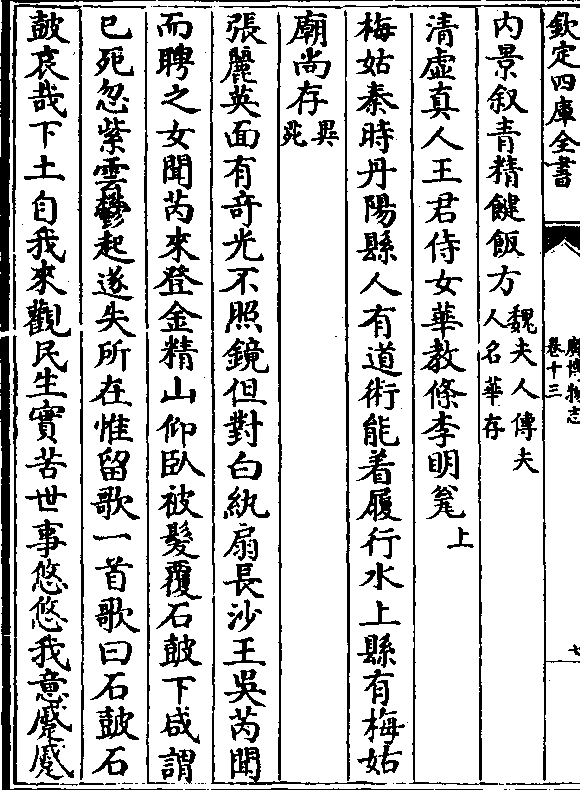 欽定四庫全書
廣博物志
卷十三
七
内景叙青精䭀飯方魏夫人傳夫
人名華存
清虛真人王君侍女華教條李明㝹上
梅姑秦時丹陽縣人有道術能着履行水上縣有梅姑
廟尚存異
苑
張麗英面有竒光不照鏡但對白紈扇長沙王吳芮聞
而聘之女聞芮來登金精山仰臥被髮覆石鼓下咸謂
已死忽紫雲鬱起遂失所在惟留歌一首歌曰石鼓石
鼓哀哉下土自我來觀民生實苦世事悠悠我意蹙蹙